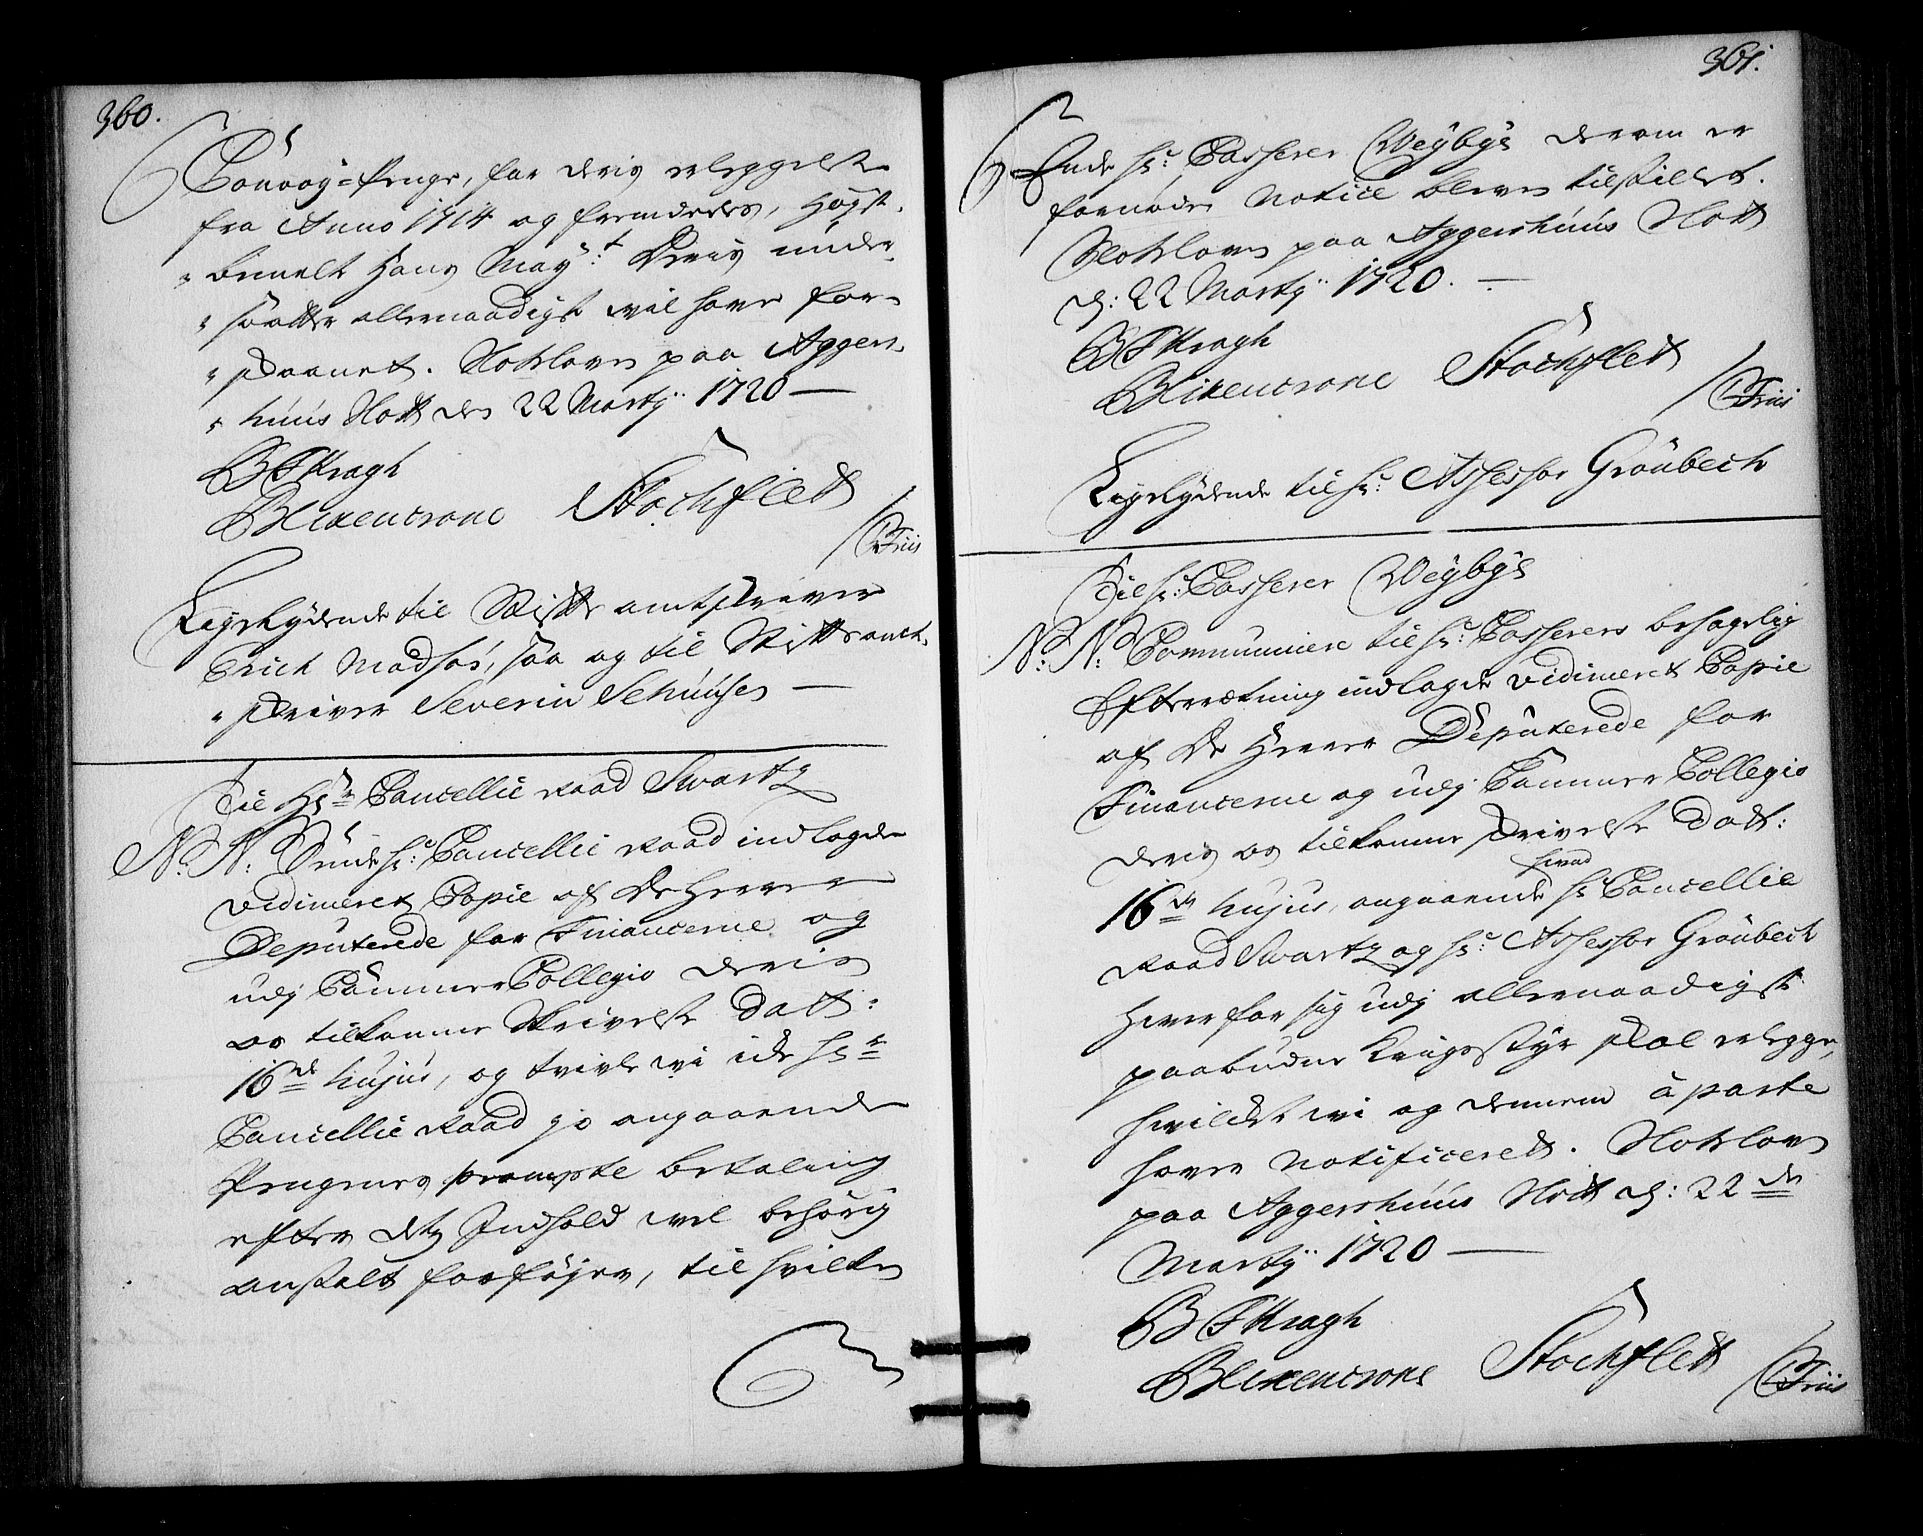 360.
Convoy-Penge, for deris erleggelse
fra Anno 1714 og fremdeeles, høyst-
bemelt Hans May:t Deris under-
saatter allernaadigst vil have for-
skaanet. Slotzloven paa Aggers-
huus Slott den 22 Martij 1720 —
B F Kragh
Blixencrone Stochflett
/CFriis
Ligelydende til Stiftsamtskriver
Erich Madsøs, saa og til Stiftsambt-
skriver Severin Schiuhsen —
Til Hr: Cancellie Raad Swartz
N: N: Sende hr: Cancellie Raad indlagde
vidimeret Copie af De Herrer
Deputerede for Financerne og
udj Cammer Collegio deris
os tilkomne Skrivelse Datt:
16de hujus, og tvivle vi icke Hr
Cancellie Raad jo angaaende
Pengenes prompte betaling
efter detz Indhold vel behørig
anstalt forføjer, til hvilken
361.
Ende hr: Casserer Weybye derom er
fornøden Notice bleven tilstillet.
Slotzloven paa Aggershuus Slott
d: 22 Martij 1720. —
B F Kragh
Blixencrone Stochflett
/CFriis
Ligelydende til hr: Assessor Grønbech
Til hr: Casserer Weybye
N: N: Communicere til hr: Casserers behagelig
Efterretning indlagde vidimeret Copie
af De Herrer Deputerede for
Financerne og udj Cammer Collegio
deris os tilkomne skrivelse Datt:
16de hujus, angaaende hvad hr Cancellie
Raad Swartz og hr: Assessor Grønbech
hver for sig udj allernaadigst
paabudne Krigsstyr skal erlegge,
hvilcket vi og dennem à parte
haver notificeret. Slotzloven
paa Aggershuus Slott d: 22de
Martij 1720 —
B F Kragh
Blixencrone Stochflett
/CFriis